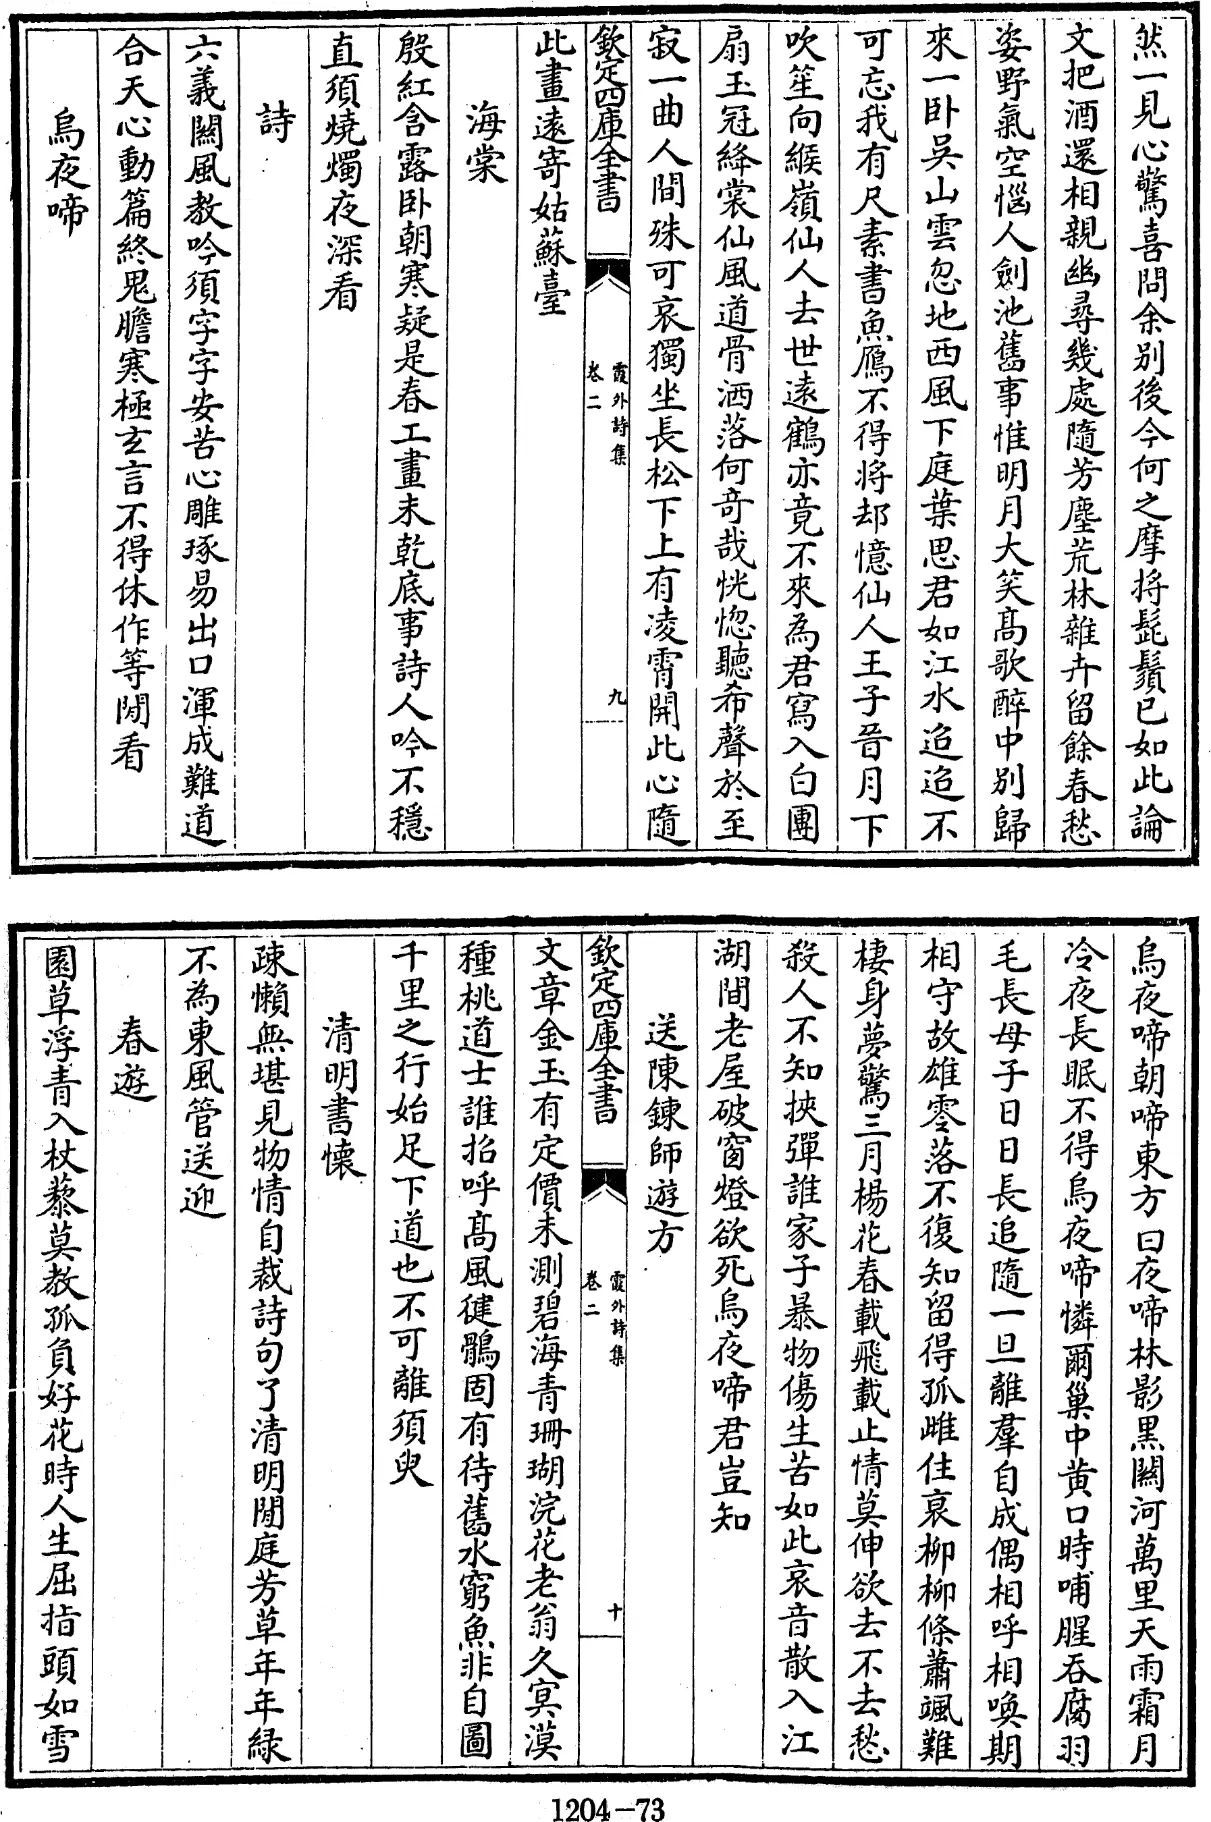 然一見心驚喜問余别後今何之摩將髭鬚已如此論
文把酒還相親幽尋幾處隨芳塵荒林雜卉留餘春愁
姿野氣空惱人劍池舊事惟明月大笑髙歌醉中别歸
來一卧吳山雲忽地西風下庭葉思君如江水迢迢不
可忘我有尺素書魚鴈不得將却憶仙人王子晉月下
吹笙向緱嶺仙人去世遠鶴亦竟不來為君寫入白團
扇玉冠絳裳仙風道骨洒落何奇哉恍惚聽希聲於至
寂一曲人間殊可哀獨坐長松下上有凌霄開此心隨
欽定四庫全書
霞外詩集
卷二
九
此畫遠寄姑蘇臺
海棠
殷紅含露卧朝寒疑是春工畫未乾底事詩人吟不穩
直須燒燭夜深看
詩
六義闗風教吟須字字安苦心雕琢易出口渾成難道
合天心動篇終鬼膽寒極玄言不得休作等閒看
烏夜啼
烏夜啼朝啼東方曰夜啼林影黒闗河萬里天雨霜月
冷夜長眠不得烏夜啼憐爾巢中黄口時哺腥吞腐羽
毛長母子日日長追隨一旦離羣自成偶相呼相喚期
相守故雄零落不復知留得孤雌住衰柳柳條蕭颯難
棲身夢驚三月楊花春載飛載止情莫伸欲去不去愁
殺人不知挾彈誰家子暴物傷生苦如此哀音散入江
湖間老屋破窗燈欲死烏夜啼君豈知
送陳鍊師遊方
欽定四庫全書
霞外詩集
卷二
十
文章金玉有定價未測碧海青珊瑚浣花老翁久寘漠
種桃道士誰招呼髙風健鶻固有待舊水窮魚非自圖
千里之行始足下道也不可離須臾
清明書懷
疎懶無堪見物情自裁詩句了清明閒庭芳草年年緑
不為東風管送迎
春遊
園草浮青入杖藜莫教孤負好花時人生屈指頭如雪
1204-73